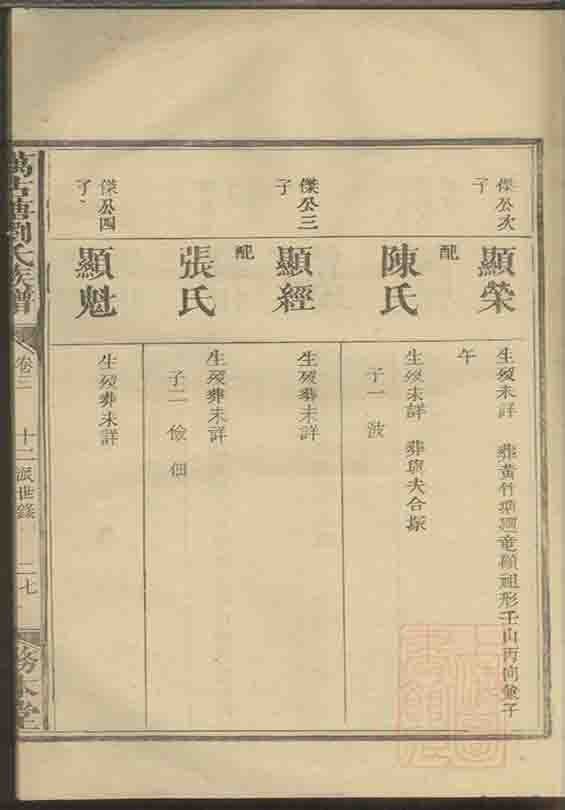 傑公次子
顯榮
生歿未詳 葬黃竹塅廻竜顧祖形壬山丙向兼子午
配
陳氏
生歿未詳 葬與夫合塚
子一 波
傑公三子
顯經
生歿葬未詳
配
張氏
生歿葬未詳
子二 儉 佃
傑公四子
顯魁
生歿葬未詳
萬古塘劉氏族譜
卷二
十二派世錄
二七
務本堂